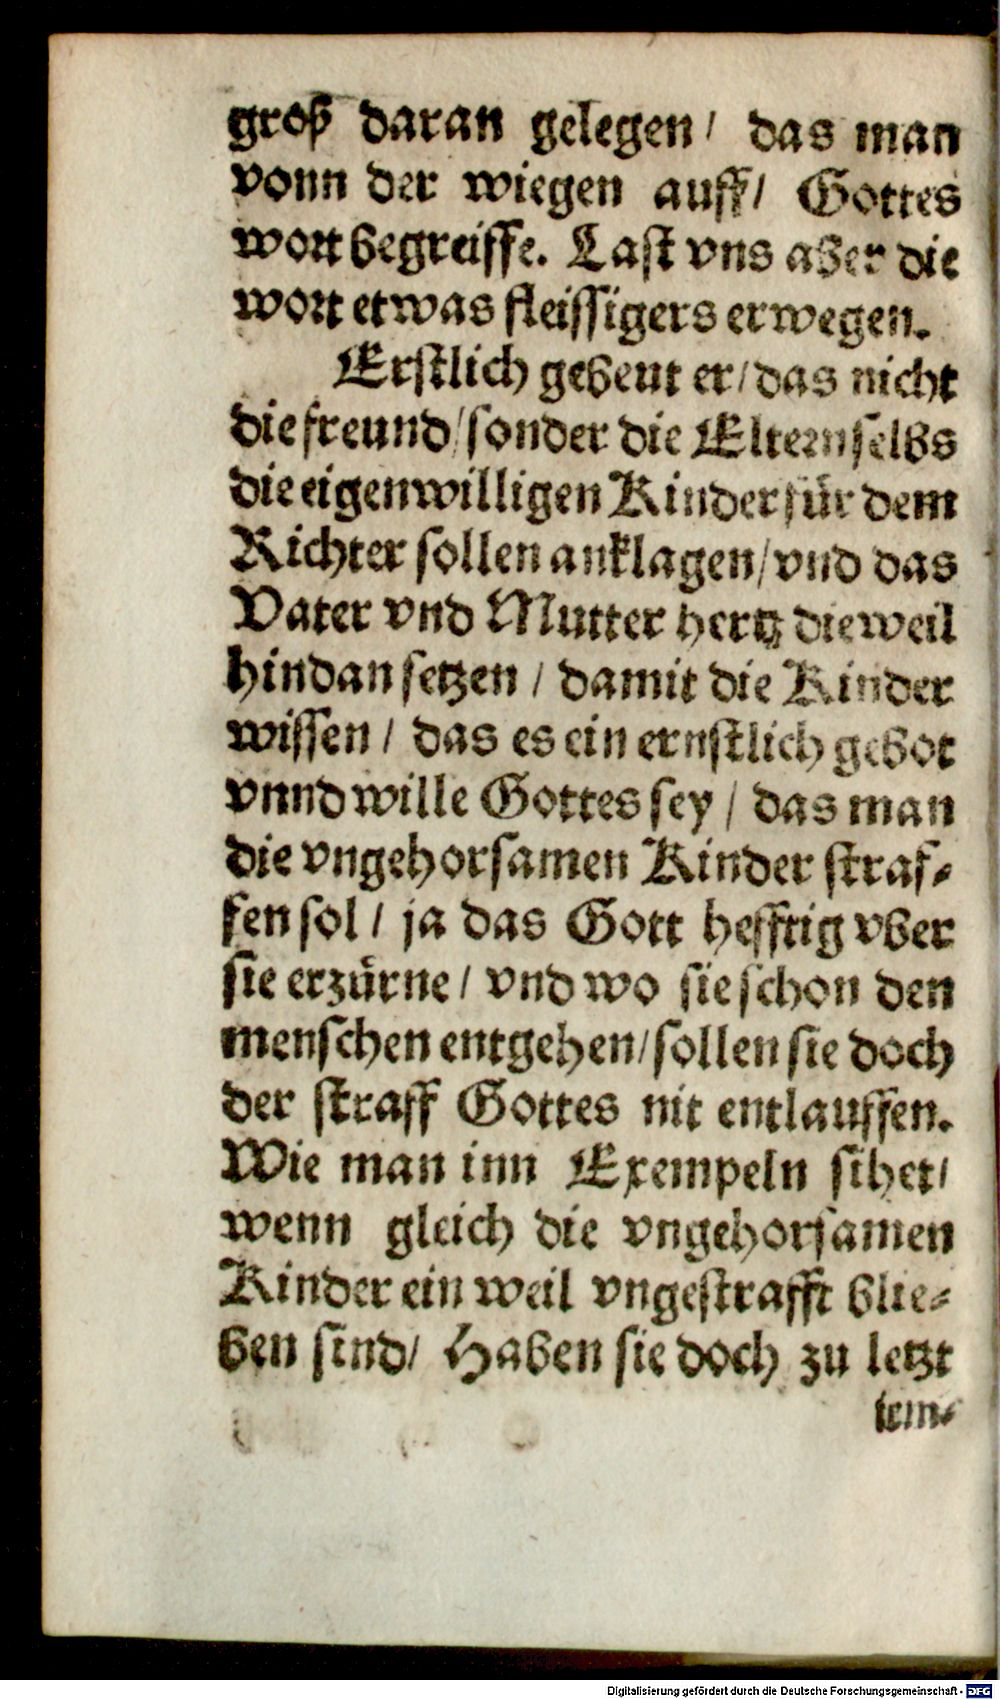 groß daran gelegen / das man
vonn der wiegen auff / Gottes
wort begreiffe. Last vns aber die
wort etwas fleissigers erwegen.
Erstlich gebeut er / das nicht
die freund / sonder die Eltern selbs
die eigenwilligen Kinder für dem
Richter sollen anklagen / vnd das
Vater vnd Mutter hertz dieweil
hindan setzen / damit die Kinder
wissen / das es ein ernstlich gebot
vnnd wille Gottes sey / das man
die vngehorsamen Kinder straf-
fen sol / ja das Gott hefftig vber
sie erzürne / vnd wo sie schon den
menschen entgehen / sollen sie doch
der straff Gottes nit entlauffen.
Wie man inn Exempeln sihet /
wenn gleich die vngehorsamen
Kinder ein weil vngestrafft blie-
ben sind / Haben sie doch zu letzt
Digitalisierung gefördert durch die Deutsche Forschungsgemeinschaft - DFG